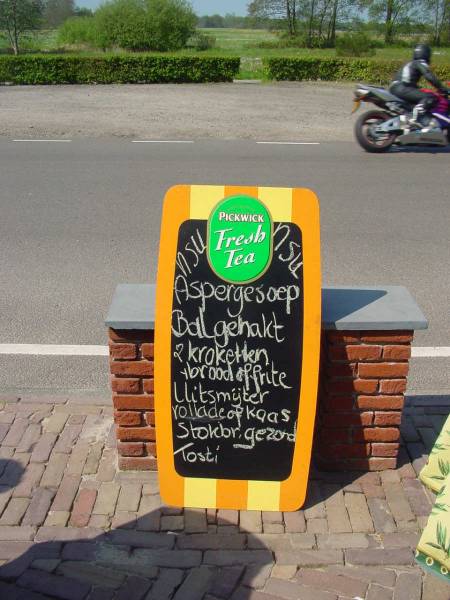 PICKWICK
Fresh
Tea
nsu nsu
Aspergesoep
Bal gehakt
2 kroketten
+ brood of frite
Uitsmijter
rollade of kaas
Stokbr. gezond
Tosti